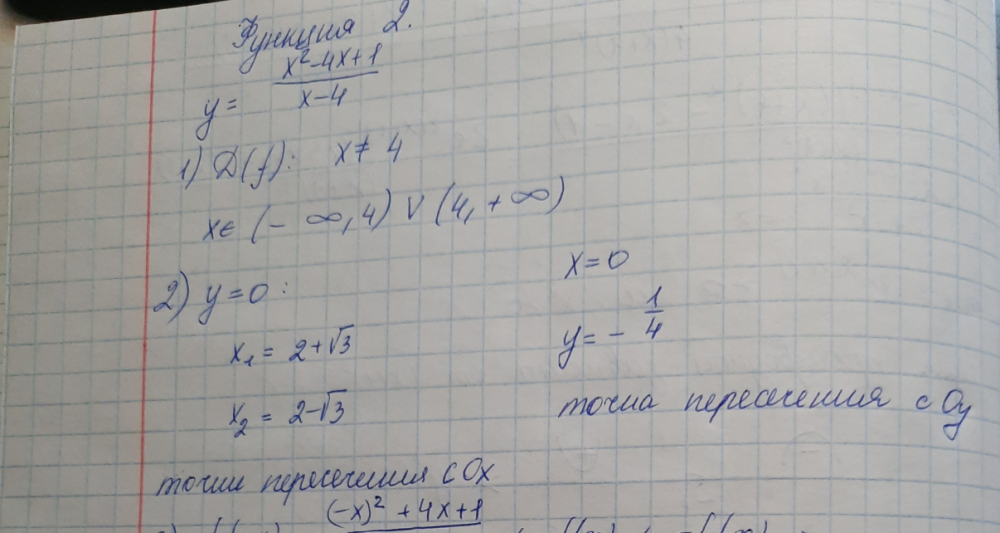 Функция 2.
y = \frac{x^2-4x+1}{x-4}
1) D(f): x ≠ 4
x ∈ (-∞, 4) ∨ (4, +∞)
2) y = 0:
x_1 = 2+√3
x_2 = 2-√3
точки пересечения с Ox
x = 0
y = -\frac{1}{4}
точка пересечения с Oy
(-x)^2 + 4x + 1